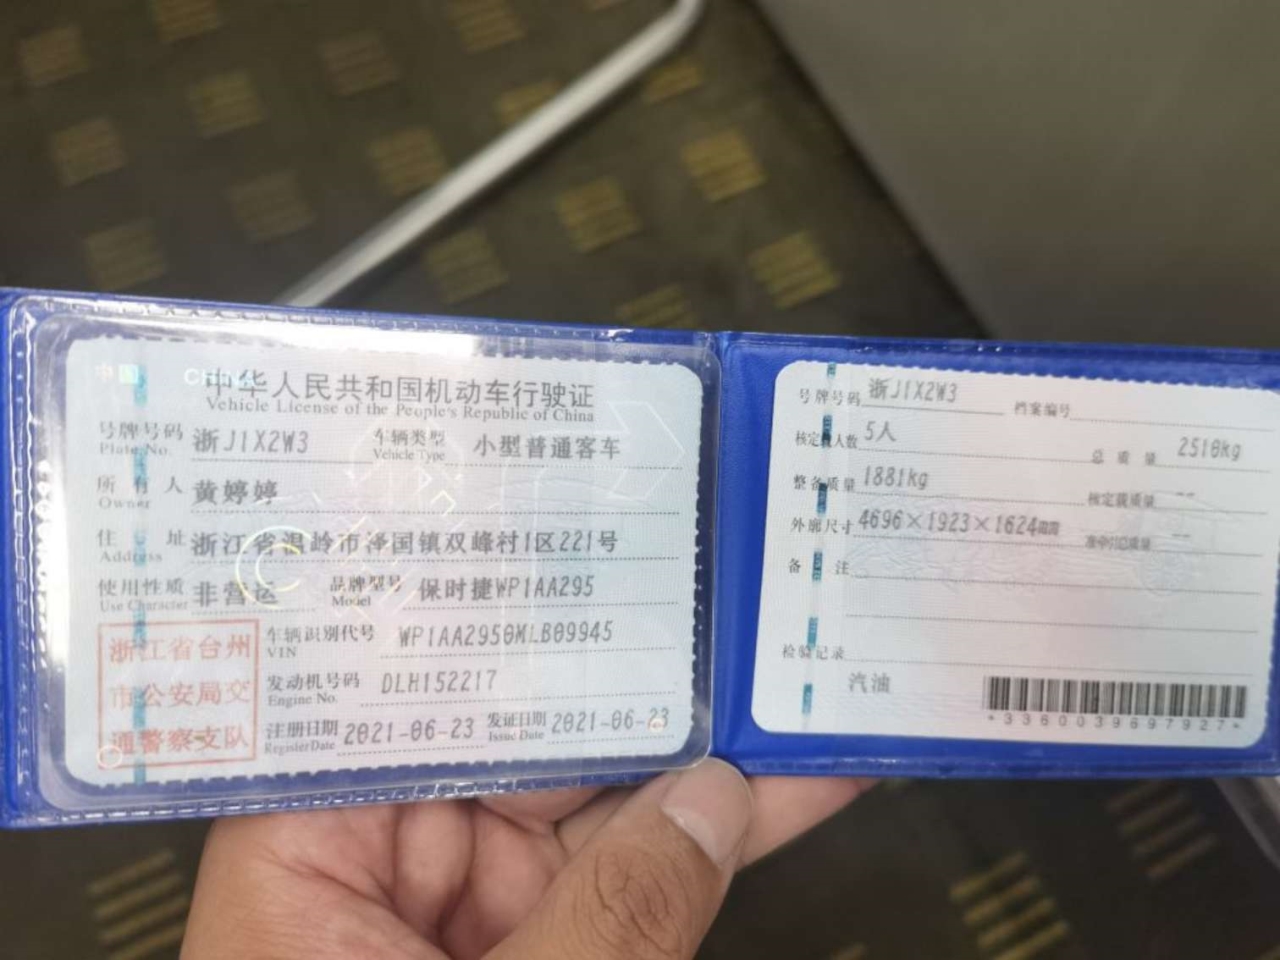 中国 CHINA
中华人民共和国机动车行驶证
Vehicle License of the People's Republic of China
号牌号码 浙J1X2W3 车辆类型 小型普通客车
Plate No. Vehicle Type
所有人 黄婷婷
Owner
住址 浙江省温岭市泽国镇双峰村1区221号
Address
使用性质 非营运 品牌型号 保时捷WP1AA295
Use Character Model
浙江省台州
市公安局交
通警察支队
车辆识别代号 WP1AA2950MLB09945
VIN
发动机号码 DLH152217
Engine No.
注册日期 2021-06-23 发证日期 2021-06-23
Register Date Issue Date
号牌号码 浙J1X2W3 档案编号
核定载人数 5人 总质量 2510kg
整备质量 1881kg 核定载质量 --
外廓尺寸 4696×1923×1624 --
备注
检验记录
汽油
*3360039697927*